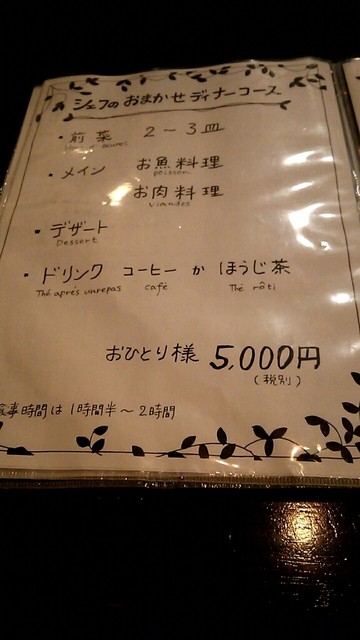 シェフのおまかせディナーコース
・前菜 2～3皿
・メイン お魚料理
poisson
お肉料理
viandes
・デザート
Dessert
・ドリンク コーヒー か ほうじ茶
Thé après unrepas café Thé rôti
おひとり様 5,000円
(税別)
食事時間は1時間半～2時間